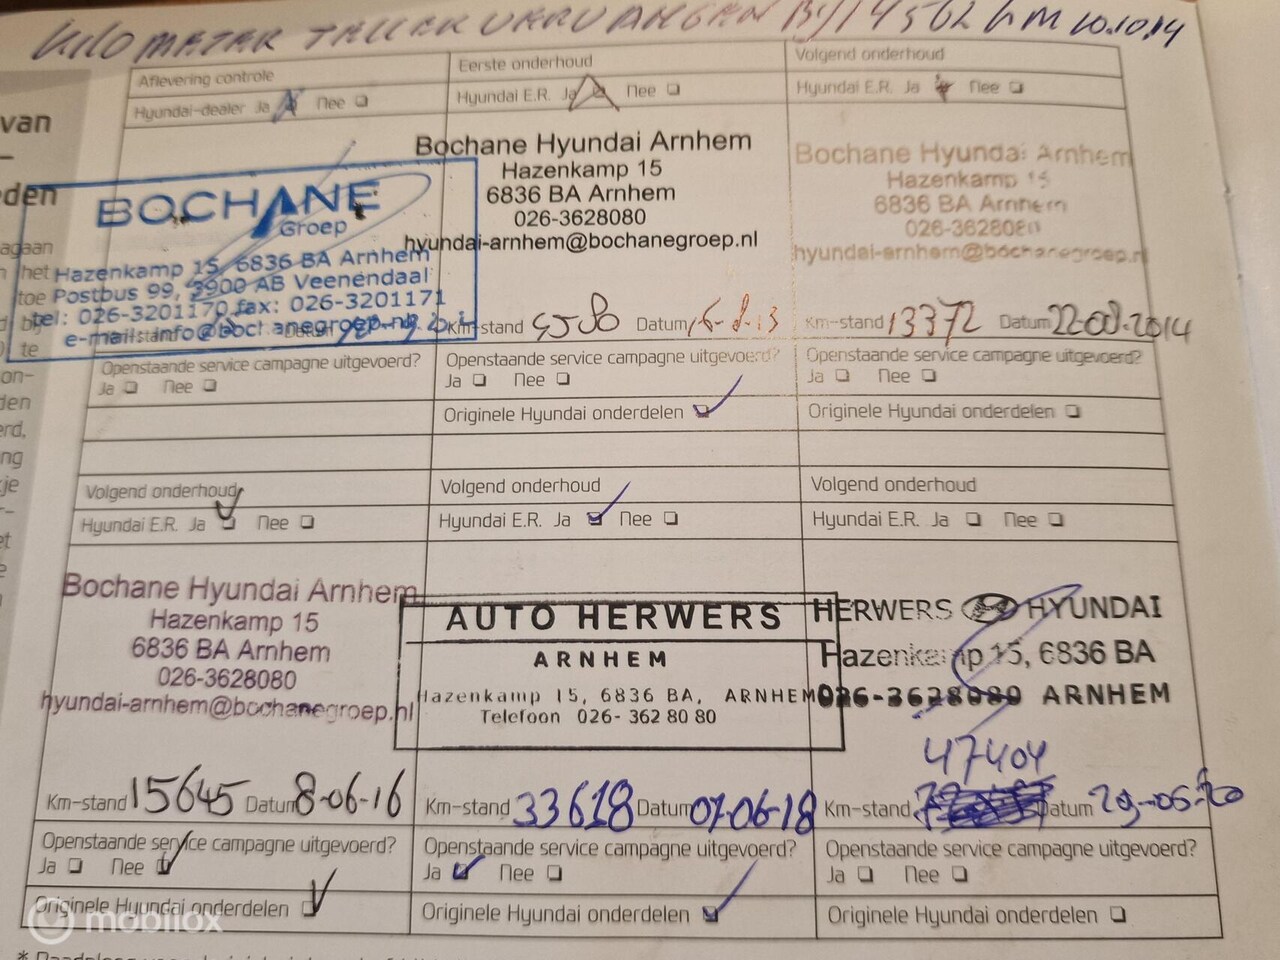 KILOMETER TELLER VERVANGEN BIJ 14562 KM 10.10.14
van
–
den
agaan
n het
toe
d bij
te
on–
den
erd,
ng
je
r–
et
e
Aflevering controle
Hyundai-dealer Ja Nee
BOCHANE
Groep
Hazenkamp 15, 6836 BA Arnhem
Postbus 99, 3900 AB Veenendaal
tel: 026-3201170 fax: 026-3201171
e-mail: info@bochanegroep.nl
Openstaande service campagne uitgevoerd?
Ja Nee
Eerste onderhoud
Hyundai E.R. Ja Nee
Bochane Hyundai Arnhem
Hazenkamp 15
6836 BA Arnhem
026-3628080
hyundai-arnhem@bochanegroep.nl
Km-stand 9580 Datum 16-8-13
Openstaande service campagne uitgevoerd?
Ja Nee
Originele Hyundai onderdelen
Volgend onderhoud
Hyundai E.R. Ja Nee
Bochane Hyundai Arnhem
Hazenkamp 15
6836 BA Arnhem
026-3628080
hyundai-arnhem@bochanegroep.nl
Km-stand 13372 Datum 22-08-2014
Openstaande service campagne uitgevoerd?
Ja Nee
Originele Hyundai onderdelen
Volgend onderhoud
Hyundai E.R. Ja Nee
Bochane Hyundai Arnhem
Hazenkamp 15
6836 BA Arnhem
026-3628080
hyundai-arnhem@bochanegroep.nl
Km-stand 15645 Datum 8-06-16
Openstaande service campagne uitgevoerd?
Ja Nee
Originele Hyundai onderdelen
Volgend onderhoud
Hyundai E.R. Ja Nee
AUTO HERWERS
ARNHEM
Hazenkamp 15, 6836 BA, ARNHEM
Telefoon 026- 362 80 80
Km-stand 33618 Datum 07-06-18
Openstaande service campagne uitgevoerd?
Ja Nee
Originele Hyundai onderdelen
Volgend onderhoud
Hyundai E.R. Ja Nee
HERWERS HYUNDAI
Hazenkamp 15, 6836 BA
026-3628080 ARNHEM
47404
Km-stand Datum 29-05-20
Openstaande service campagne uitgevoerd?
Ja Nee
Originele Hyundai onderdelen
mobilox